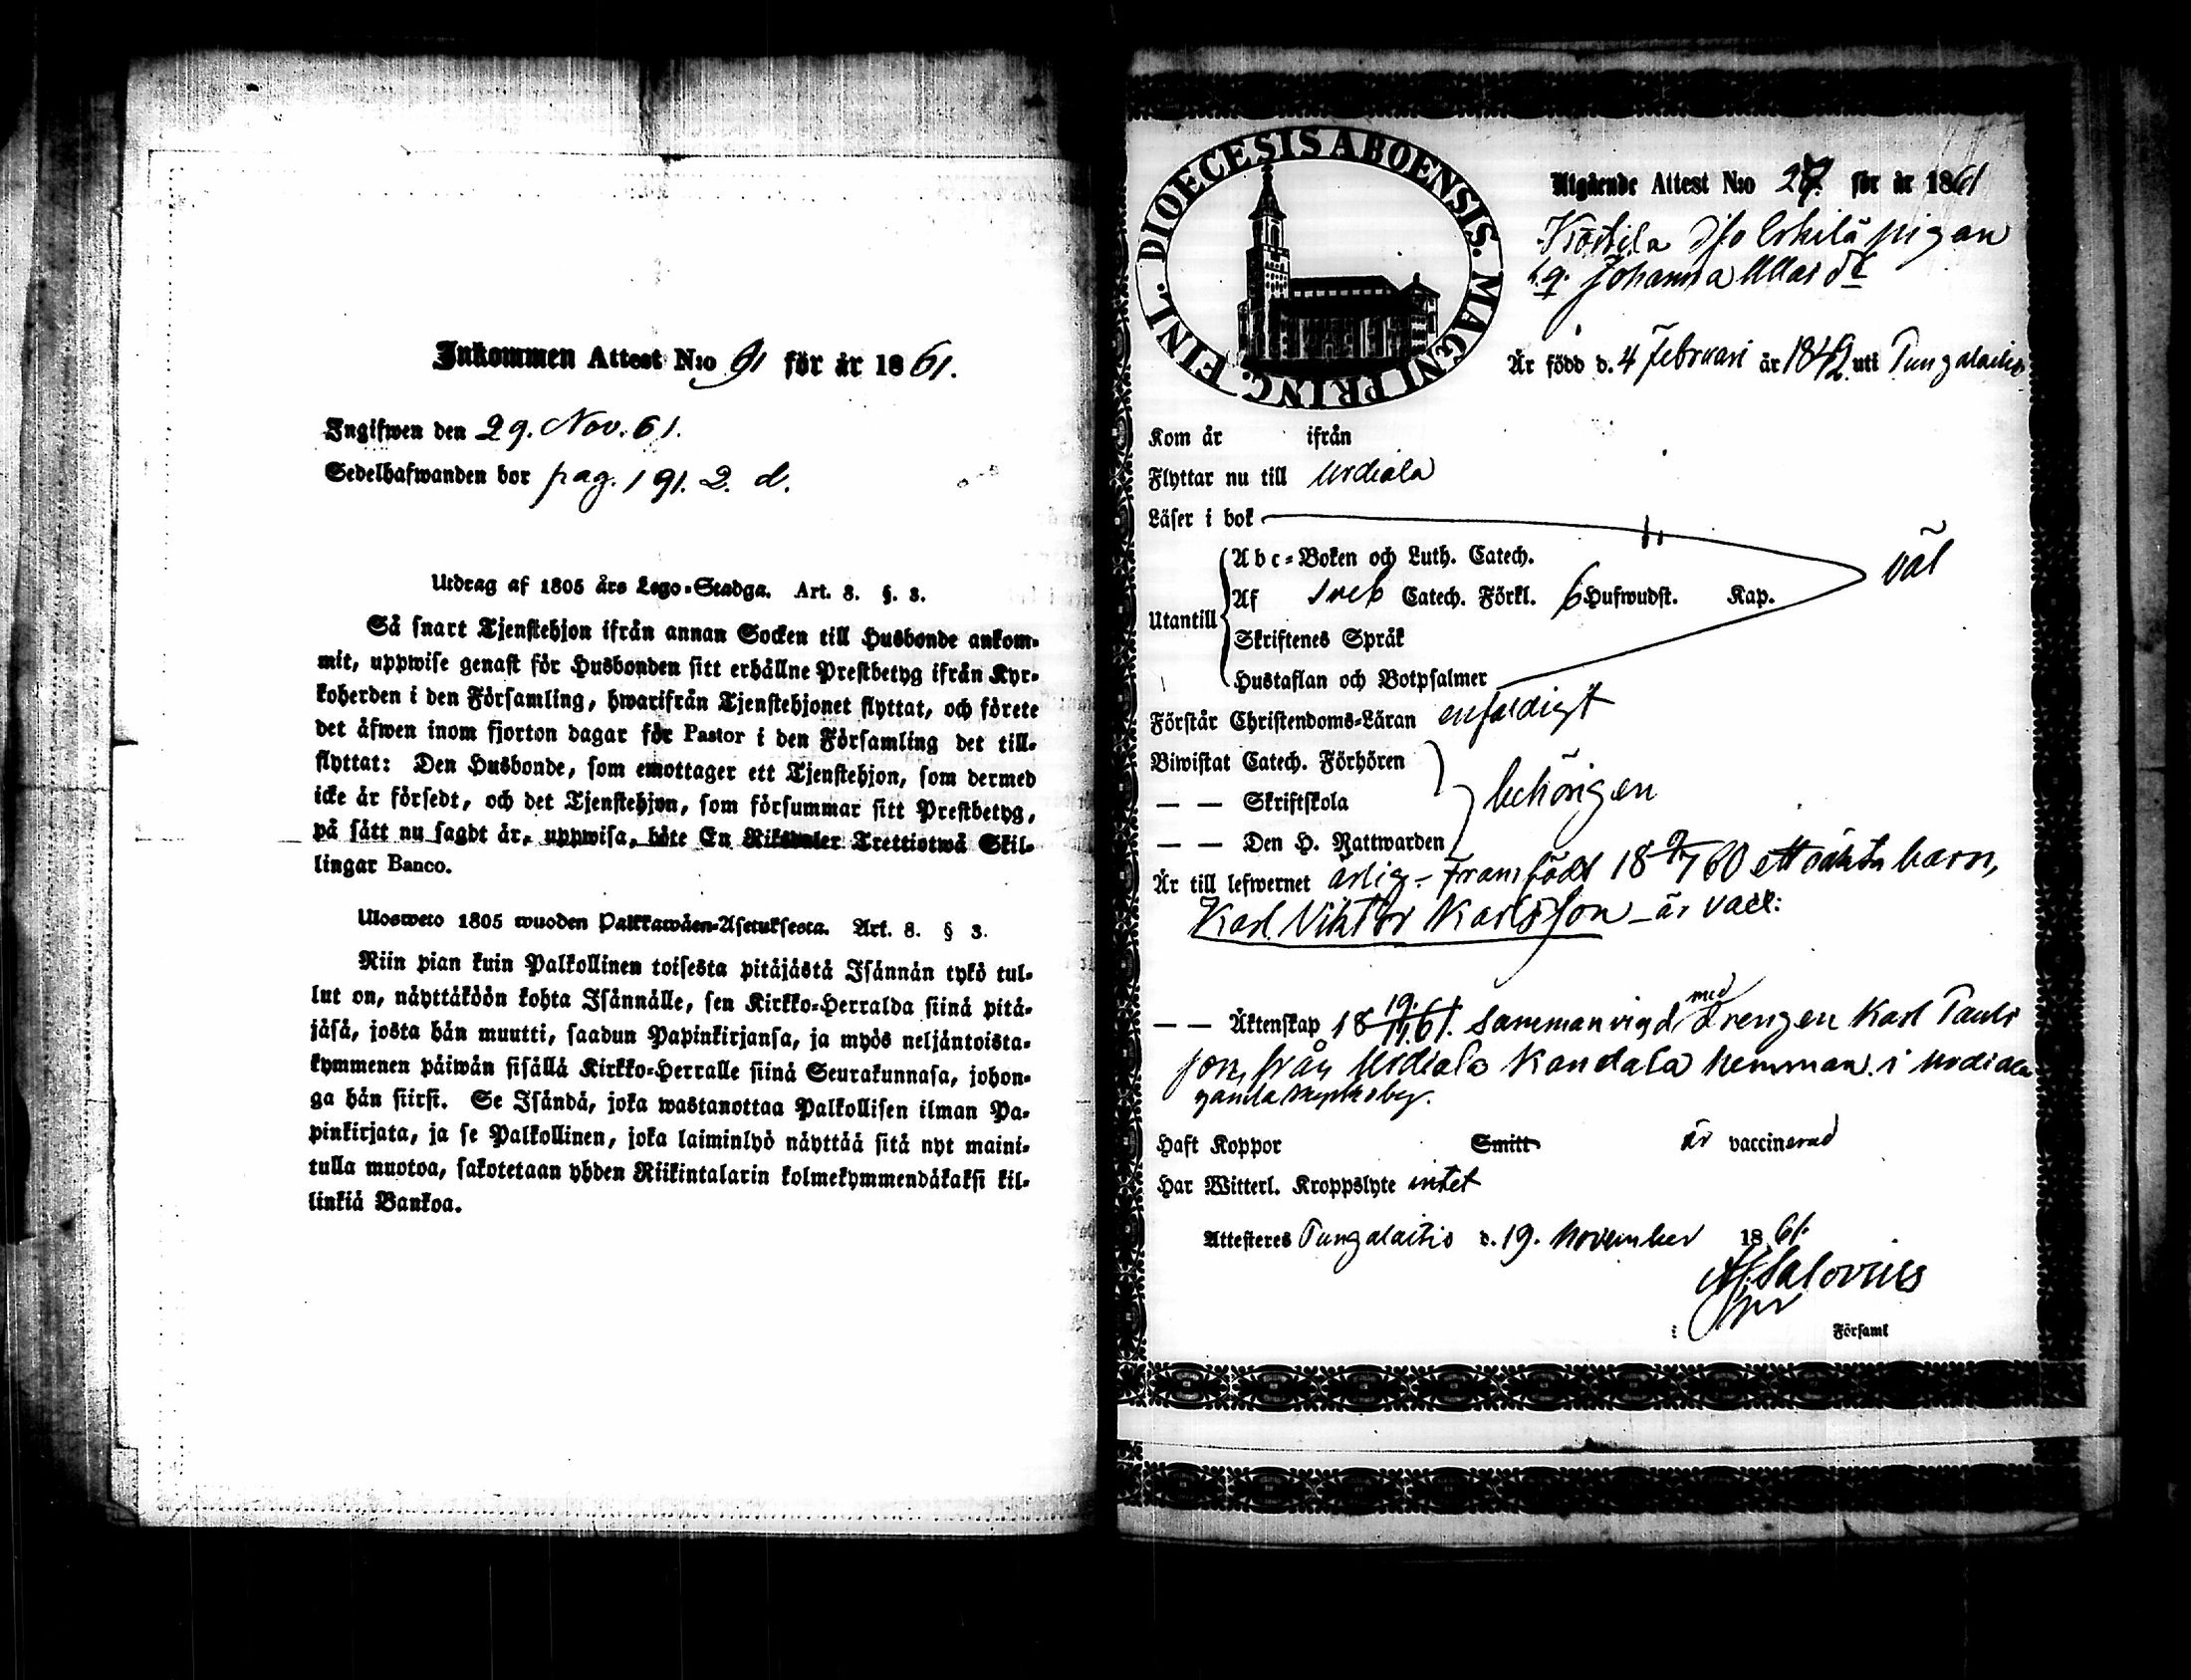 Inkommen Attest N:o 91 för år 1861.
Ingifwen den 29. Nov. 61.
Sedelhafwanden bor pag. 191. 2. d.
Utdrag af 1805 års Lego-Stadga. Art. 8. §. 3.
Så snart Tjenstehjon ifrån annan Socken till Husbonde ankom-
mit, uppwise genast för Husbonden sitt erhållne Prestbetyg ifrån Kyr-
koherden i den Församling, hwarifrån Tjenstehjonet flyttat, och förete
det äfwen inom fjorton dagar för Pastor i den Församling det till-
flyttat: Den Husbonde, som emottager ett Tjenstehjon, som dermed
icke är försedt, och det Tjenstehjon, som försummar sitt Prestbetyg,
på sätt nu sagdt är, uppwisa, böte En Riksdaler Trettiotwå Skil-
lingar Banco.
Ulosweto 1805 wuoden Palkkawäen-Asetuksesta. Art. 8. § 3.
Niin pian kuin Palkollinen toisesta pitäjästä Isännän tykö tul-
lut on, näyttäköön kohta Isännälle, sen Kirkko-Herralda siinä pitä-
jäsä, josta hän muutti, saadun Papinkirjansa, ja myös neljäntoista-
kymmenen päiwän sisällä Kirkko-Herralle siinä Seurakunnasa, johon-
ga hän siirsi. Se Isändä, joka wastanottaa Palkollisen ilman Pa-
pinkirjata, ja se Palkollinen, joka laiminlyö näyttää sitä nyt maini-
tulla muotoa, sakotetaan yhden Riikintalarin kolmekymmendäkaksi kil-
linkiä Bankoa.
FINL. DIOECESIS ABOENSIS. MAGNI PRINC.
Utgående Attest N:o 27. för år 1861
pigan
Johanna
Är född d. 4 Februari år 1842 uti Pungalaitio
Kom år ifrån
Flyttar nu till Urdiala
Läser i bok
väl
Utantill
Abc-Boken och Luth. Catech.
Af Sveb Catech. Förkl. 6 Hufwudst. Kap.
Skriftenes Språk
Hustaflan och Botpsalmer
Förstår Christendoms-Läran enfaldigt
Biwistat Catech. Förhören
— — Skriftskola behörigen
— — Den H. Nattwarden
Är till lefwernet ärlig - framfödt 18 60 ett oäkta barn,
Karl Viktor Karlsson - är vacc:
— — Äktenskap 18 19/11 61. sammanvigd med drengen Karl Pauls
son från Urdiala Kandala hemman i Urdiala
gamla
Haft Koppor Smitt är vaccinerad
Har Witterl. Kroppslyte intet
Attesteres Pungalaitio d. 19. November 1861.
Salovius
i Församl